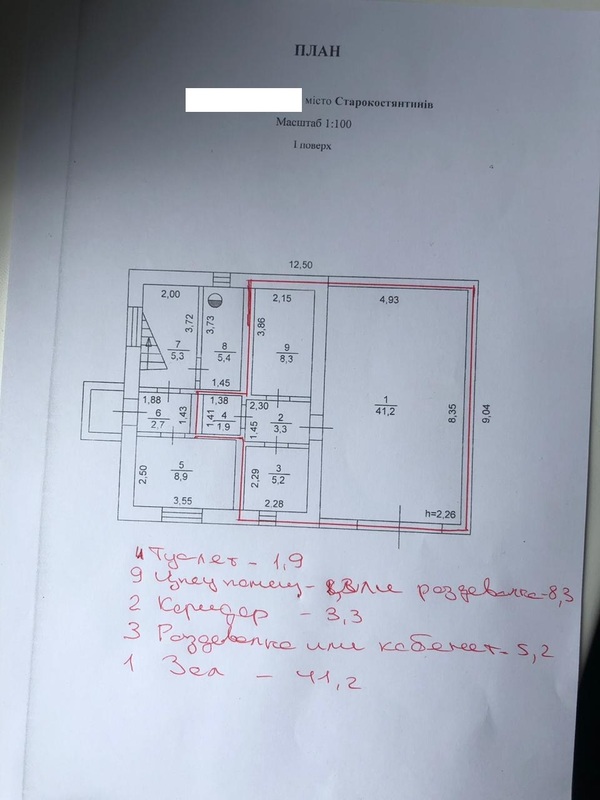 ПЛАН
місто Старокостянтинів
Масштаб 1:100
І поверх
12,50
2,00
2,15
4,93
3,72
3,73
3,86
7
5,3
8
5,4
9
8,3
1,45
1
41,2
8,35
9,04
1,88
1,38
2,30
6
2,7
1,43
1,41
4
1,9
1,45
2
3,3
2,50
5
8,9
2,29
3
5,2
3,55
2,28
h=2,26
4 Туалет - 1,9
9 или раздевалка - 8,3
2 Коридор - 3,3
3 Раздевалка или кабенет - 5,2
1 Зал - 41,2